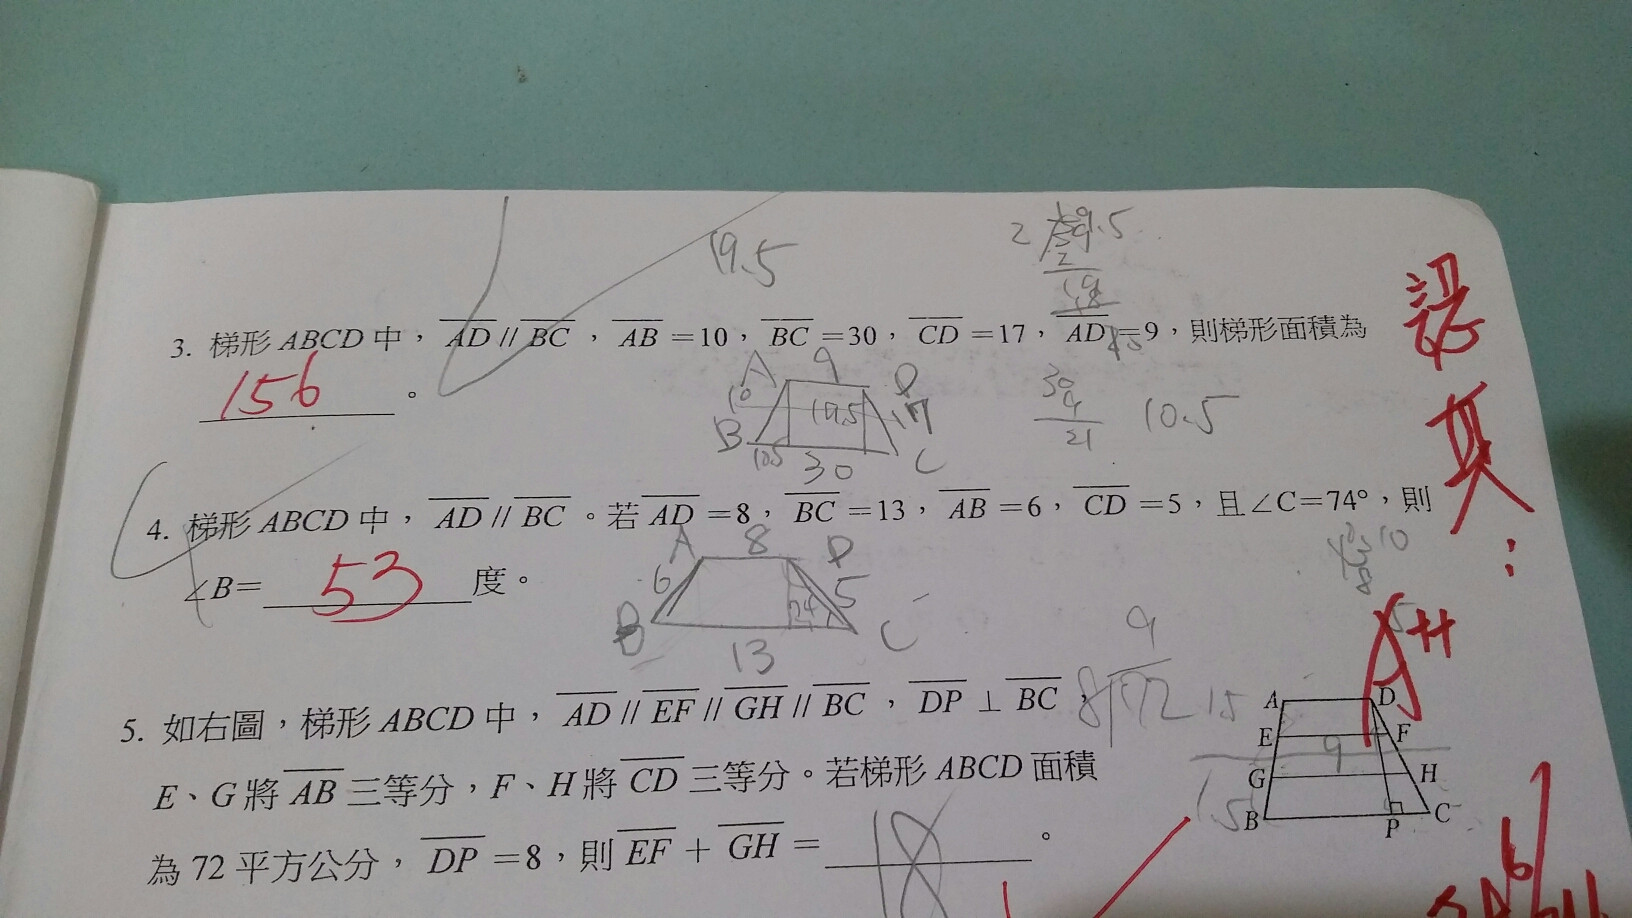 19.5
2 19.5
3. 梯形 ABCD 中，AD // BC，AB =10，BC =30，CD =17，AD =9，則梯形面積為
156 。
A 9 D
10 19.5 17
B 10.5 30 C
39
9
21
10.5
認真：
4. 梯形 ABCD 中，AD // BC。若 AD =8，BC =13，AB =6，CD =5，且∠C=74°，則
∠B= 53 度。
A 8 D
6 5
B 13 C
5. 如右圖，梯形 ABCD 中，AD // EF // GH // BC，DP ⊥ BC，
E、G 將 AB 三等分，F、H 將 CD 三等分。若梯形 ABCD 面積
為 72 平方公分，DP =8，則 EF + GH = 18 。
9
8 72
A D
E F
9
G H
B P C